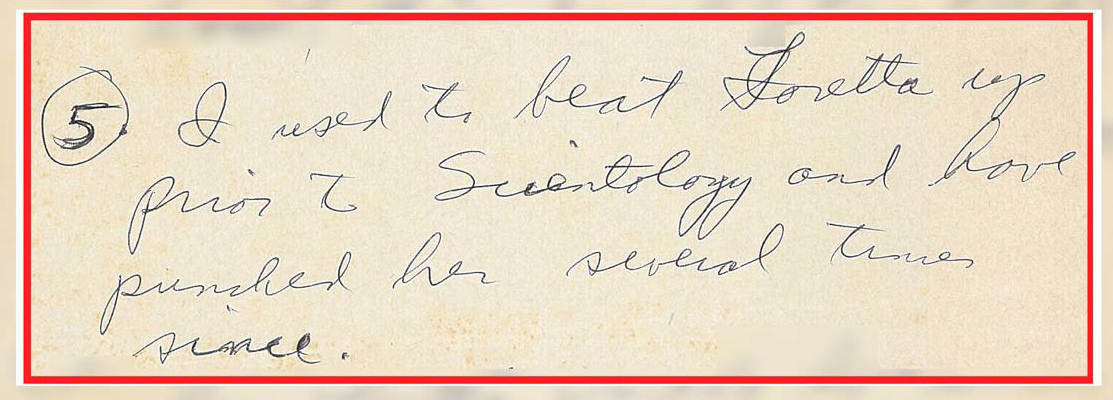 5. I used to beat Loretta up
prior to Scientology and have
punched her several times
since.